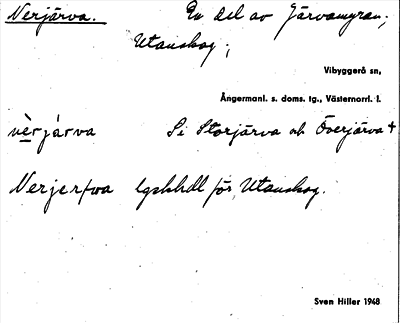 Nerjärva. En del av Järvamyran,
Utanskog;
Vibyggerå sn,
Ångermanl. s. doms. tg., Västernorrl. l.
nèrjárva Se Storjärva och Överjärva +
Nerjerfwa lgskhdl för Utanskog.
Sven Hiller 1948